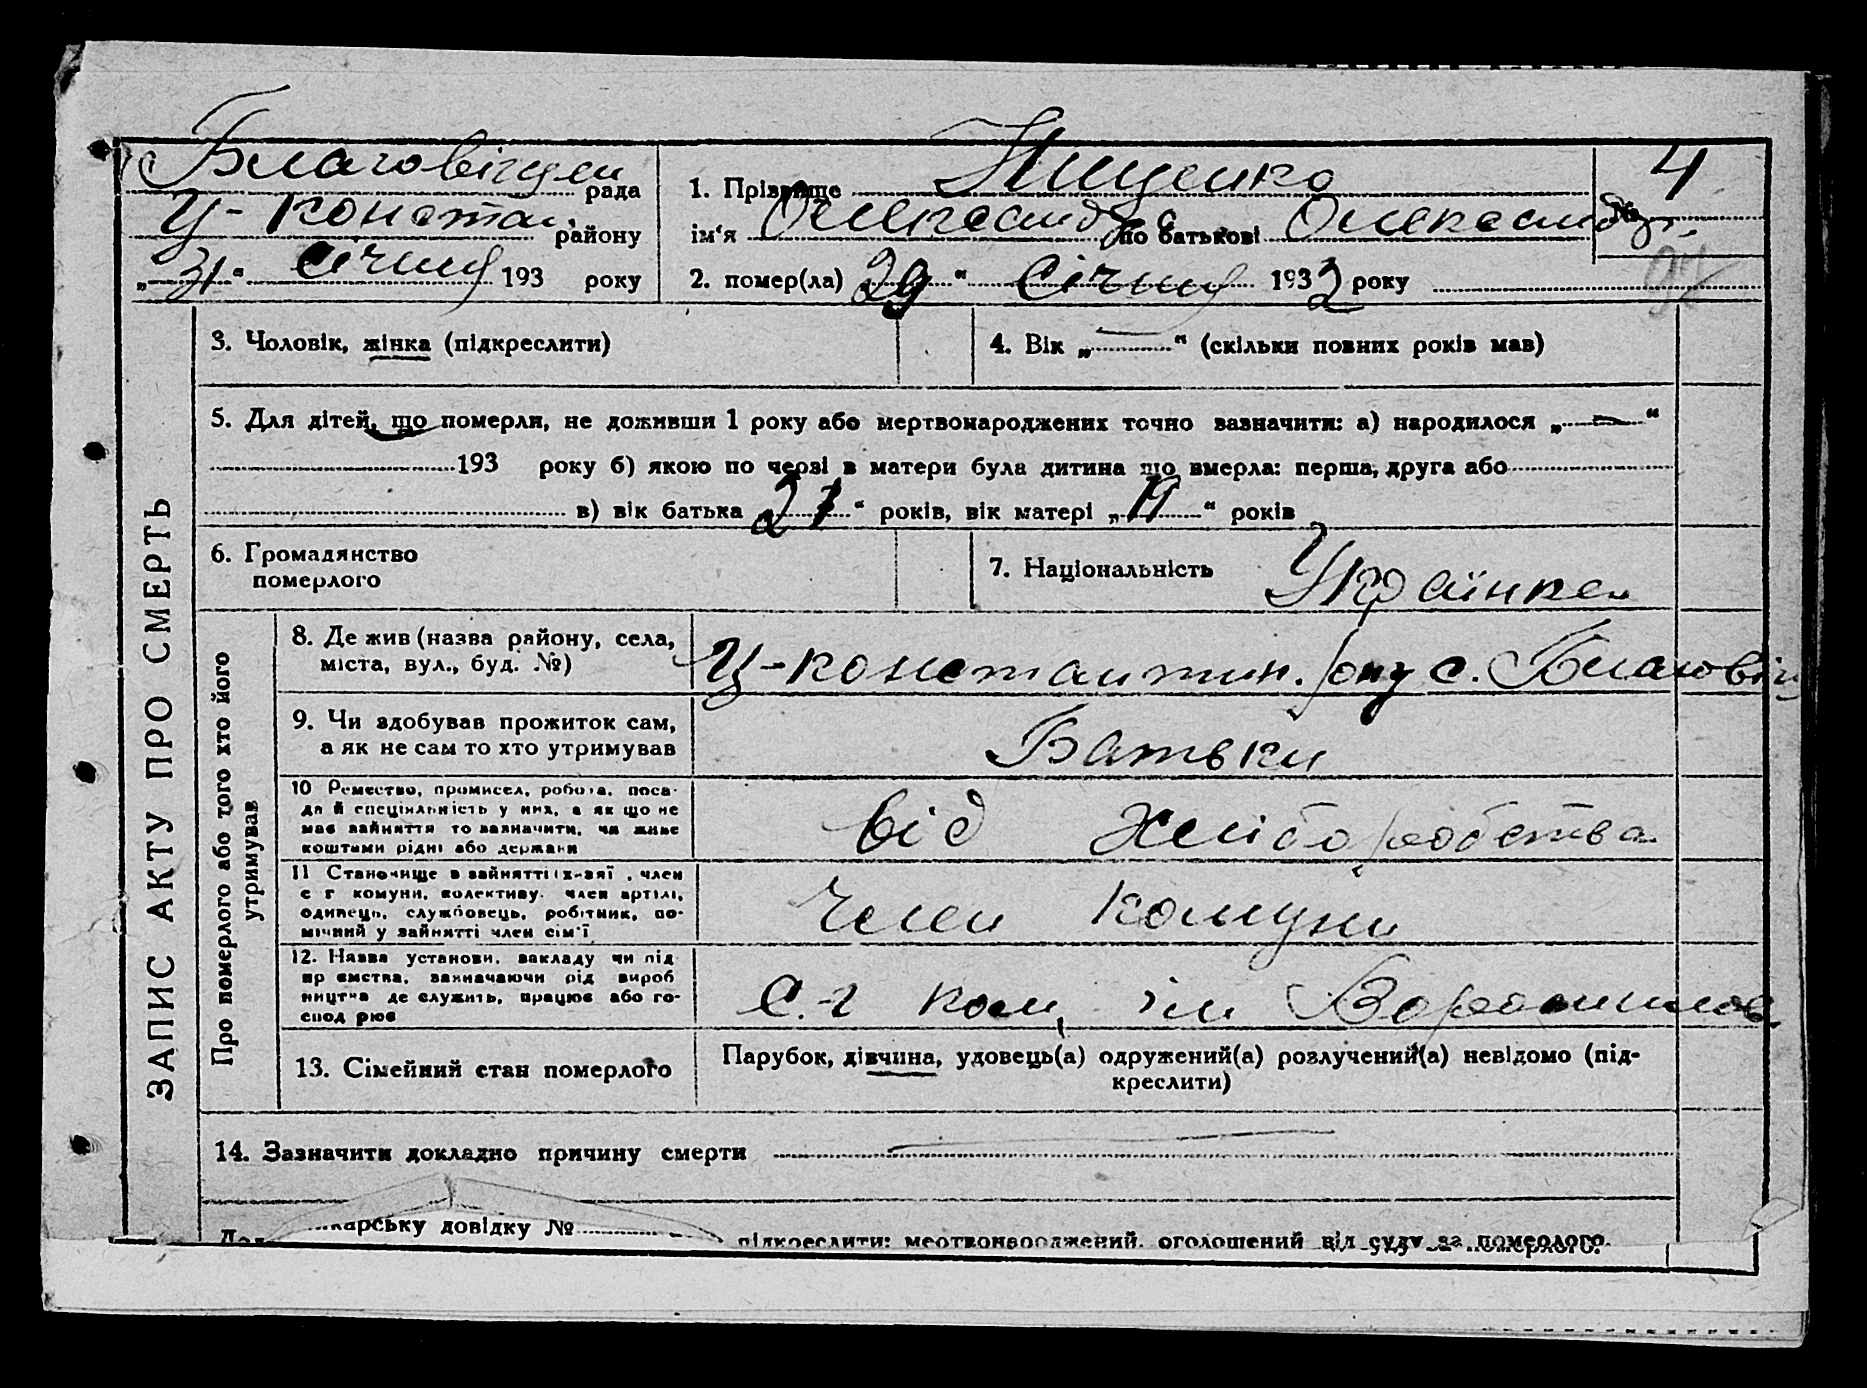 Благовіщен рада
Ц-Констан. району
„31“ Січня 193 року
1. Прізвище Нищенко
ім‘я Олександра по батькові Олександр.
2. помер(ла) „29“ Січня 1932 року
4
94
ЗАПИС АКТУ ПРО СМЕРТЬ
3. Чоловік, жінка (підкреслити)
4. Вік „—“ (скільки повних років мав)
5. Для дітей, що померли, не доживши 1 року або мертвонароджених точно зазначити: а) народилося „—“
193 року б) якою по черзі в матери була дитина що вмерла: перша, друга або
в) вік батька „21“ років, вік матері „19“ років
6. Громадянство
померлого
7. Національність Українка
Про померлого або того хто його
утримував
8. Де жив (назва району, села,
міста, вул., буд. №)
Ц-Константин. р-ну с. Благовіщ
9. Чи здобував прожиток сам,
а як не сам то хто утримував
Батьки
10 Ремество, промисел, робота, поса-
да й спеціяльність у них, а як що не
має зайняття то зазначити, чи живе
коштами рідні або держави
від хліборобства
11 Становище в зайнятті (х-зяї , член
с г комуни, колективу, член артілі,
одинець, службовець, робітник, по-
мічний у зайнятті член сім‘ї
Член Комуни
12. Назва установи, закладу чи під
пр ємства, зазначаючи рід вироб
ництва де служить, працює або го-
спод рює
С.-г ком, ім Ворошилова
13. Сімейний стан померлого
Парубок, дівчина, удовець(а) одружений(а) розлучений(а) невідомо (під-
креслити)
14. Зазначити докладно причину смерти
карську довідку №
підкреслити: мертвонароджений, оголошений від суду за померлого.